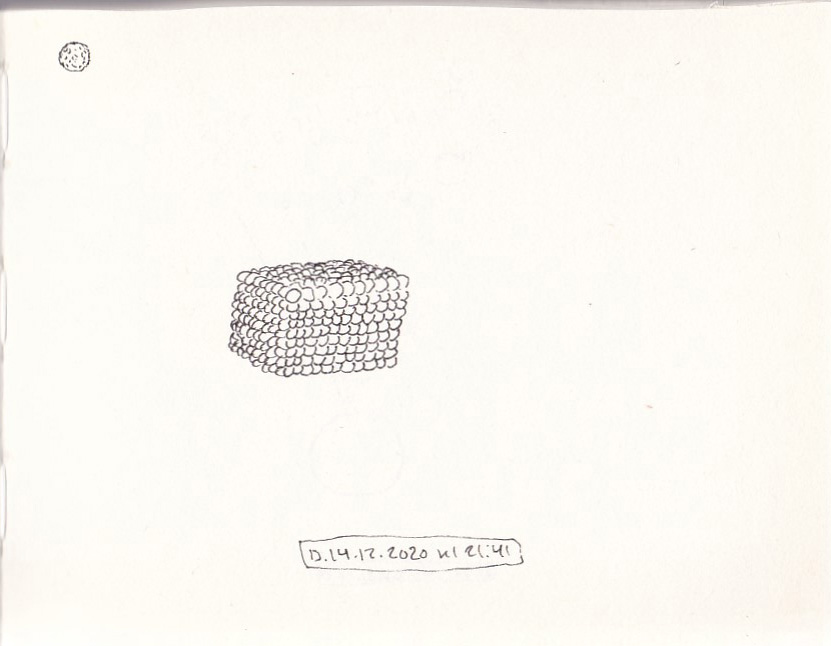 D.14.12.2020 kl 21:41